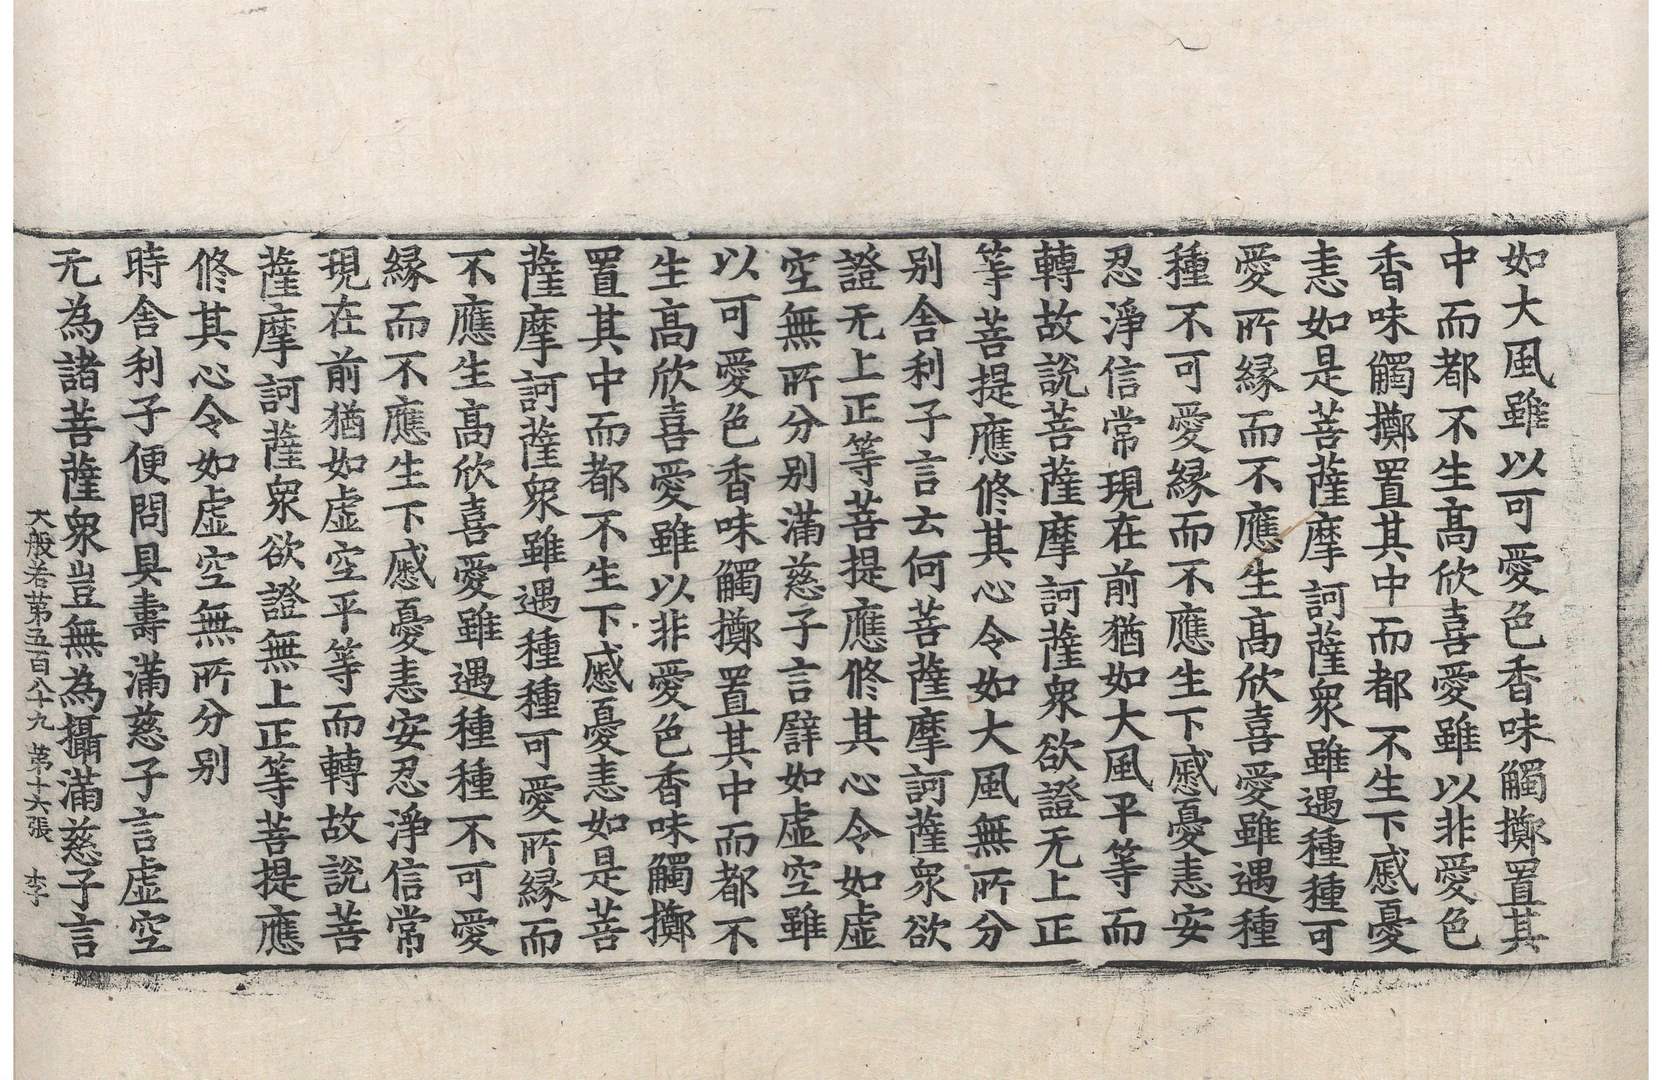 如大風雖以可愛色香味觸擲置其
中而都不生髙欣喜愛雖以非愛色
香味觸擲置其中而都不生下慼憂
恚如是菩薩摩訶薩衆雖遇種種可
愛所縁而不應生髙欣喜愛雖遇種
種不可愛縁而不應生下慼憂恚安
忍淨信常現在前猶如大風平等而
轉故說菩薩摩訶薩衆欲證无上正
等菩提應修其心令如大風無所分
别舍利子言云何菩薩摩訶薩衆欲
證无上正等菩提應修其心令如虛
空無所分别滿慈子言譬如虛空雖
以可愛色香味觸擲置其中而都不
生髙欣喜愛雖以非愛色香味觸擲
置其中而都不生下慼憂恚如是菩
薩摩訶薩衆雖遇種種可愛所縁而
不應生髙欣喜愛雖遇種種不可愛
縁而不應生下慼憂恚安忍淨信常
現在前猶如虛空平等而轉故說菩
薩摩訶薩衆欲證無上正等菩提應
修其心令如虛空無所分别
時舍利子便問具壽滿慈子言虛空
无為諸菩薩衆豈無為攝滿慈子言
大般若第五百八十九 第十六張 李